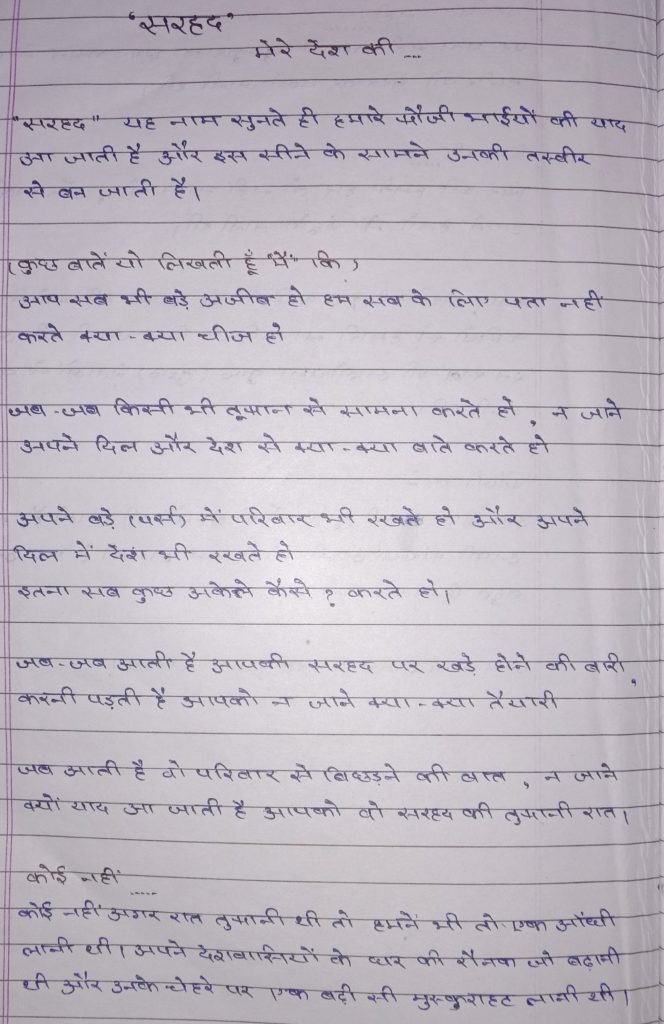 "सरहद"
मेरे देश की ...
"सरहद" यह नाम सुनते ही हमारे फौजी भाईयों की याद
आ जाती है और इस सीने के सामने उनकी तस्वीर
से बन जाती है।
(कुछ बातें यो लिखती हूँ "मैं" कि)
आप सब भी बड़े अजीब हो हम सब के लिए पता नही
करते क्या - क्या चीज हो
जब -जब किसी भी तूफान से सामना करते हो , न जाने
अपने दिल और देश से क्या -क्या बाते करते हो
अपने बड़े (पर्स) में परिवार भी रखते हो और अपने
दिल में देश भी रखते हो
इतना सब कुछ अकेले कैसे ? करते हो।
जब-जब आती है आपकी सरहद पर खड़े होने की बारी ,
करनी पड़ती है आपको न जाने क्या -क्या तैयारी
जब आती है वो परिवार से बिछड़ने की बात , न जाने
क्यों याद आ जाती है आपको वो सरहद की तुफानी रात।
कोई नहीं .....
कोई नहीं अगर रात तुफानी थी तो हमनें भी तो एक आँधी
लानी थी। अपने देशवासियों के घर की रौनक जो बढ़ानी
थी और उनके चेहरे पर एक बड़ी सी मुस्कुराहट लानी थी।